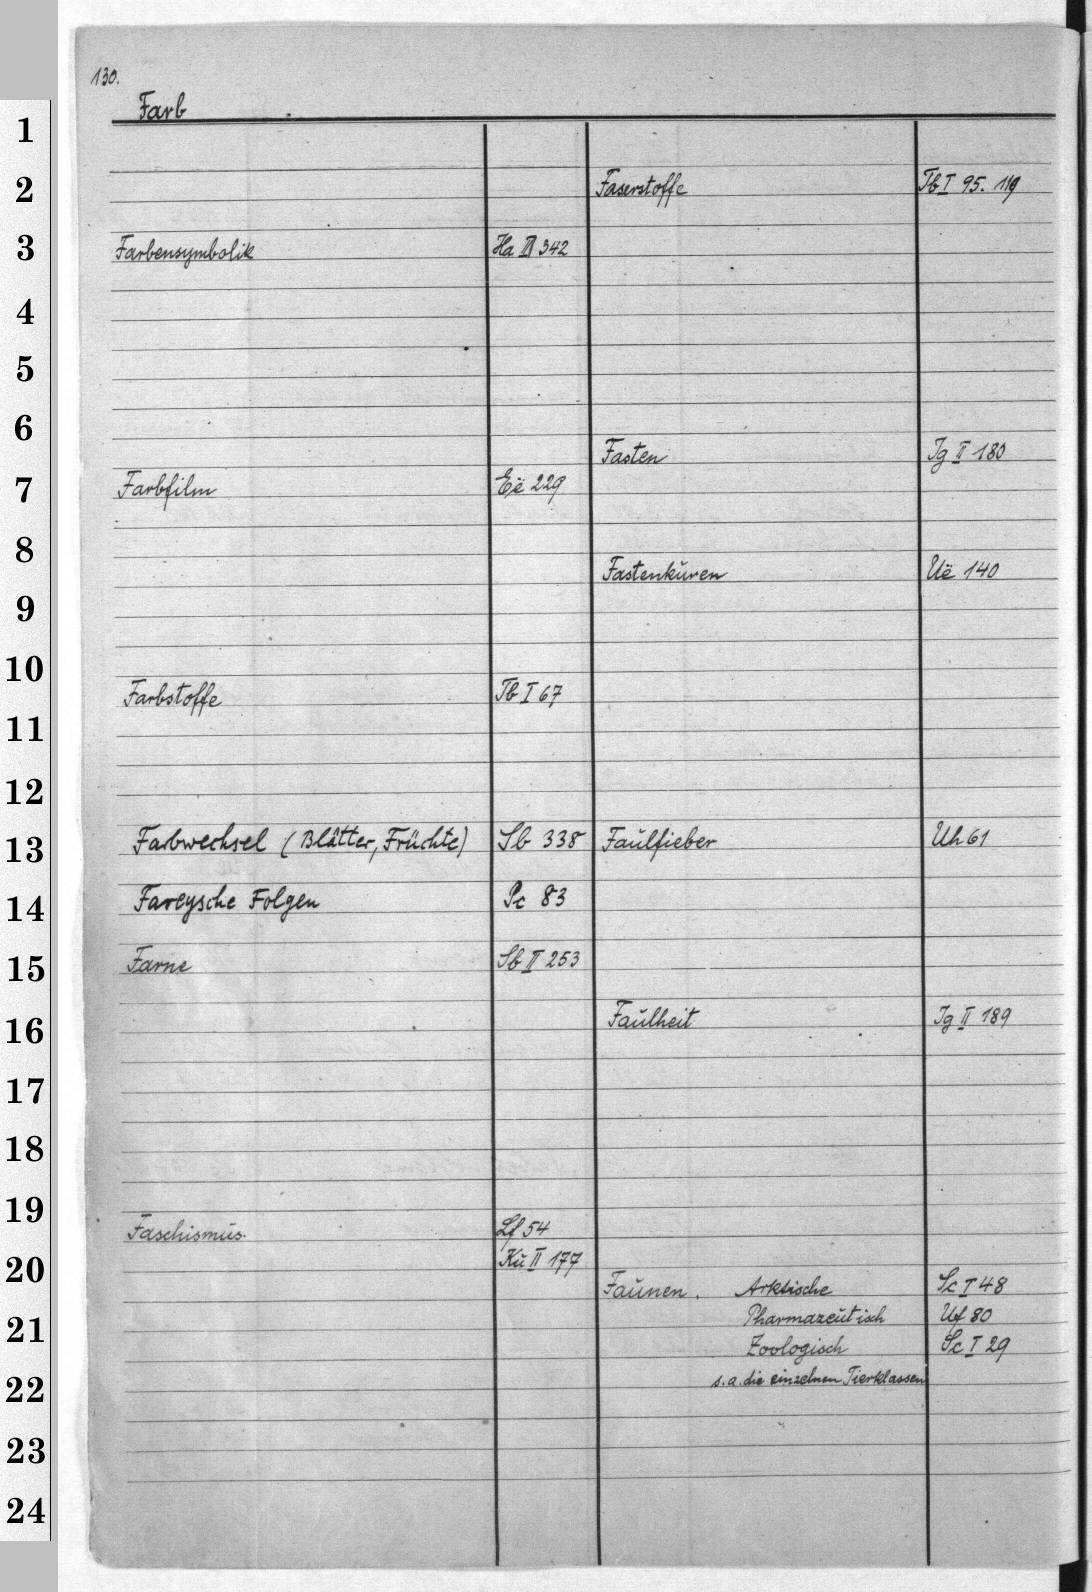 130.
Farb
1
2
3
4
5
6
7
8
9
10
11
12
13
14
15
16
17
18
19
20
21
22
23
24
Farbensymbolik Ha III 342
Farbfilm Eë 229
Farbstoffe Tb I 67
Farbwechsel (Blätter, Früchte) Sb 338
Fareysche Folgen Pc 83
Farne Sb II 253
Faschismus. Lf 54
Kü II 177
Faserstoffe Tb I 95. 119
Fasten Jg II 180
Fastenkuren Uë 140
Faulfieber Uh 61
Faulheit Jg II 189
Faunen. Arktische Sc I 48
Pharmazeutisch Uf 80
Zoologisch Sc I 29
s. a. die einzelnen Tierklassen